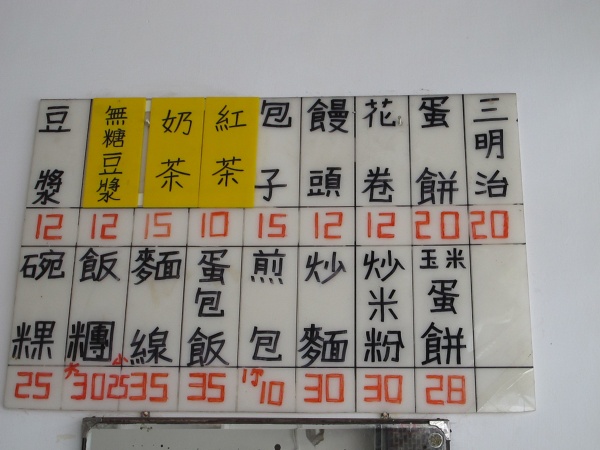 豆漿
無糖豆漿
奶茶
紅茶
包子
饅頭
花卷
蛋餅
三明治
12
12
15
10
15
12
12
20
20
碗粿
飯糰
麵線
蛋包飯
煎包
炒麵
炒米粉
玉米蛋餅
25
大30
小25
35
35
1个10
30
30
28